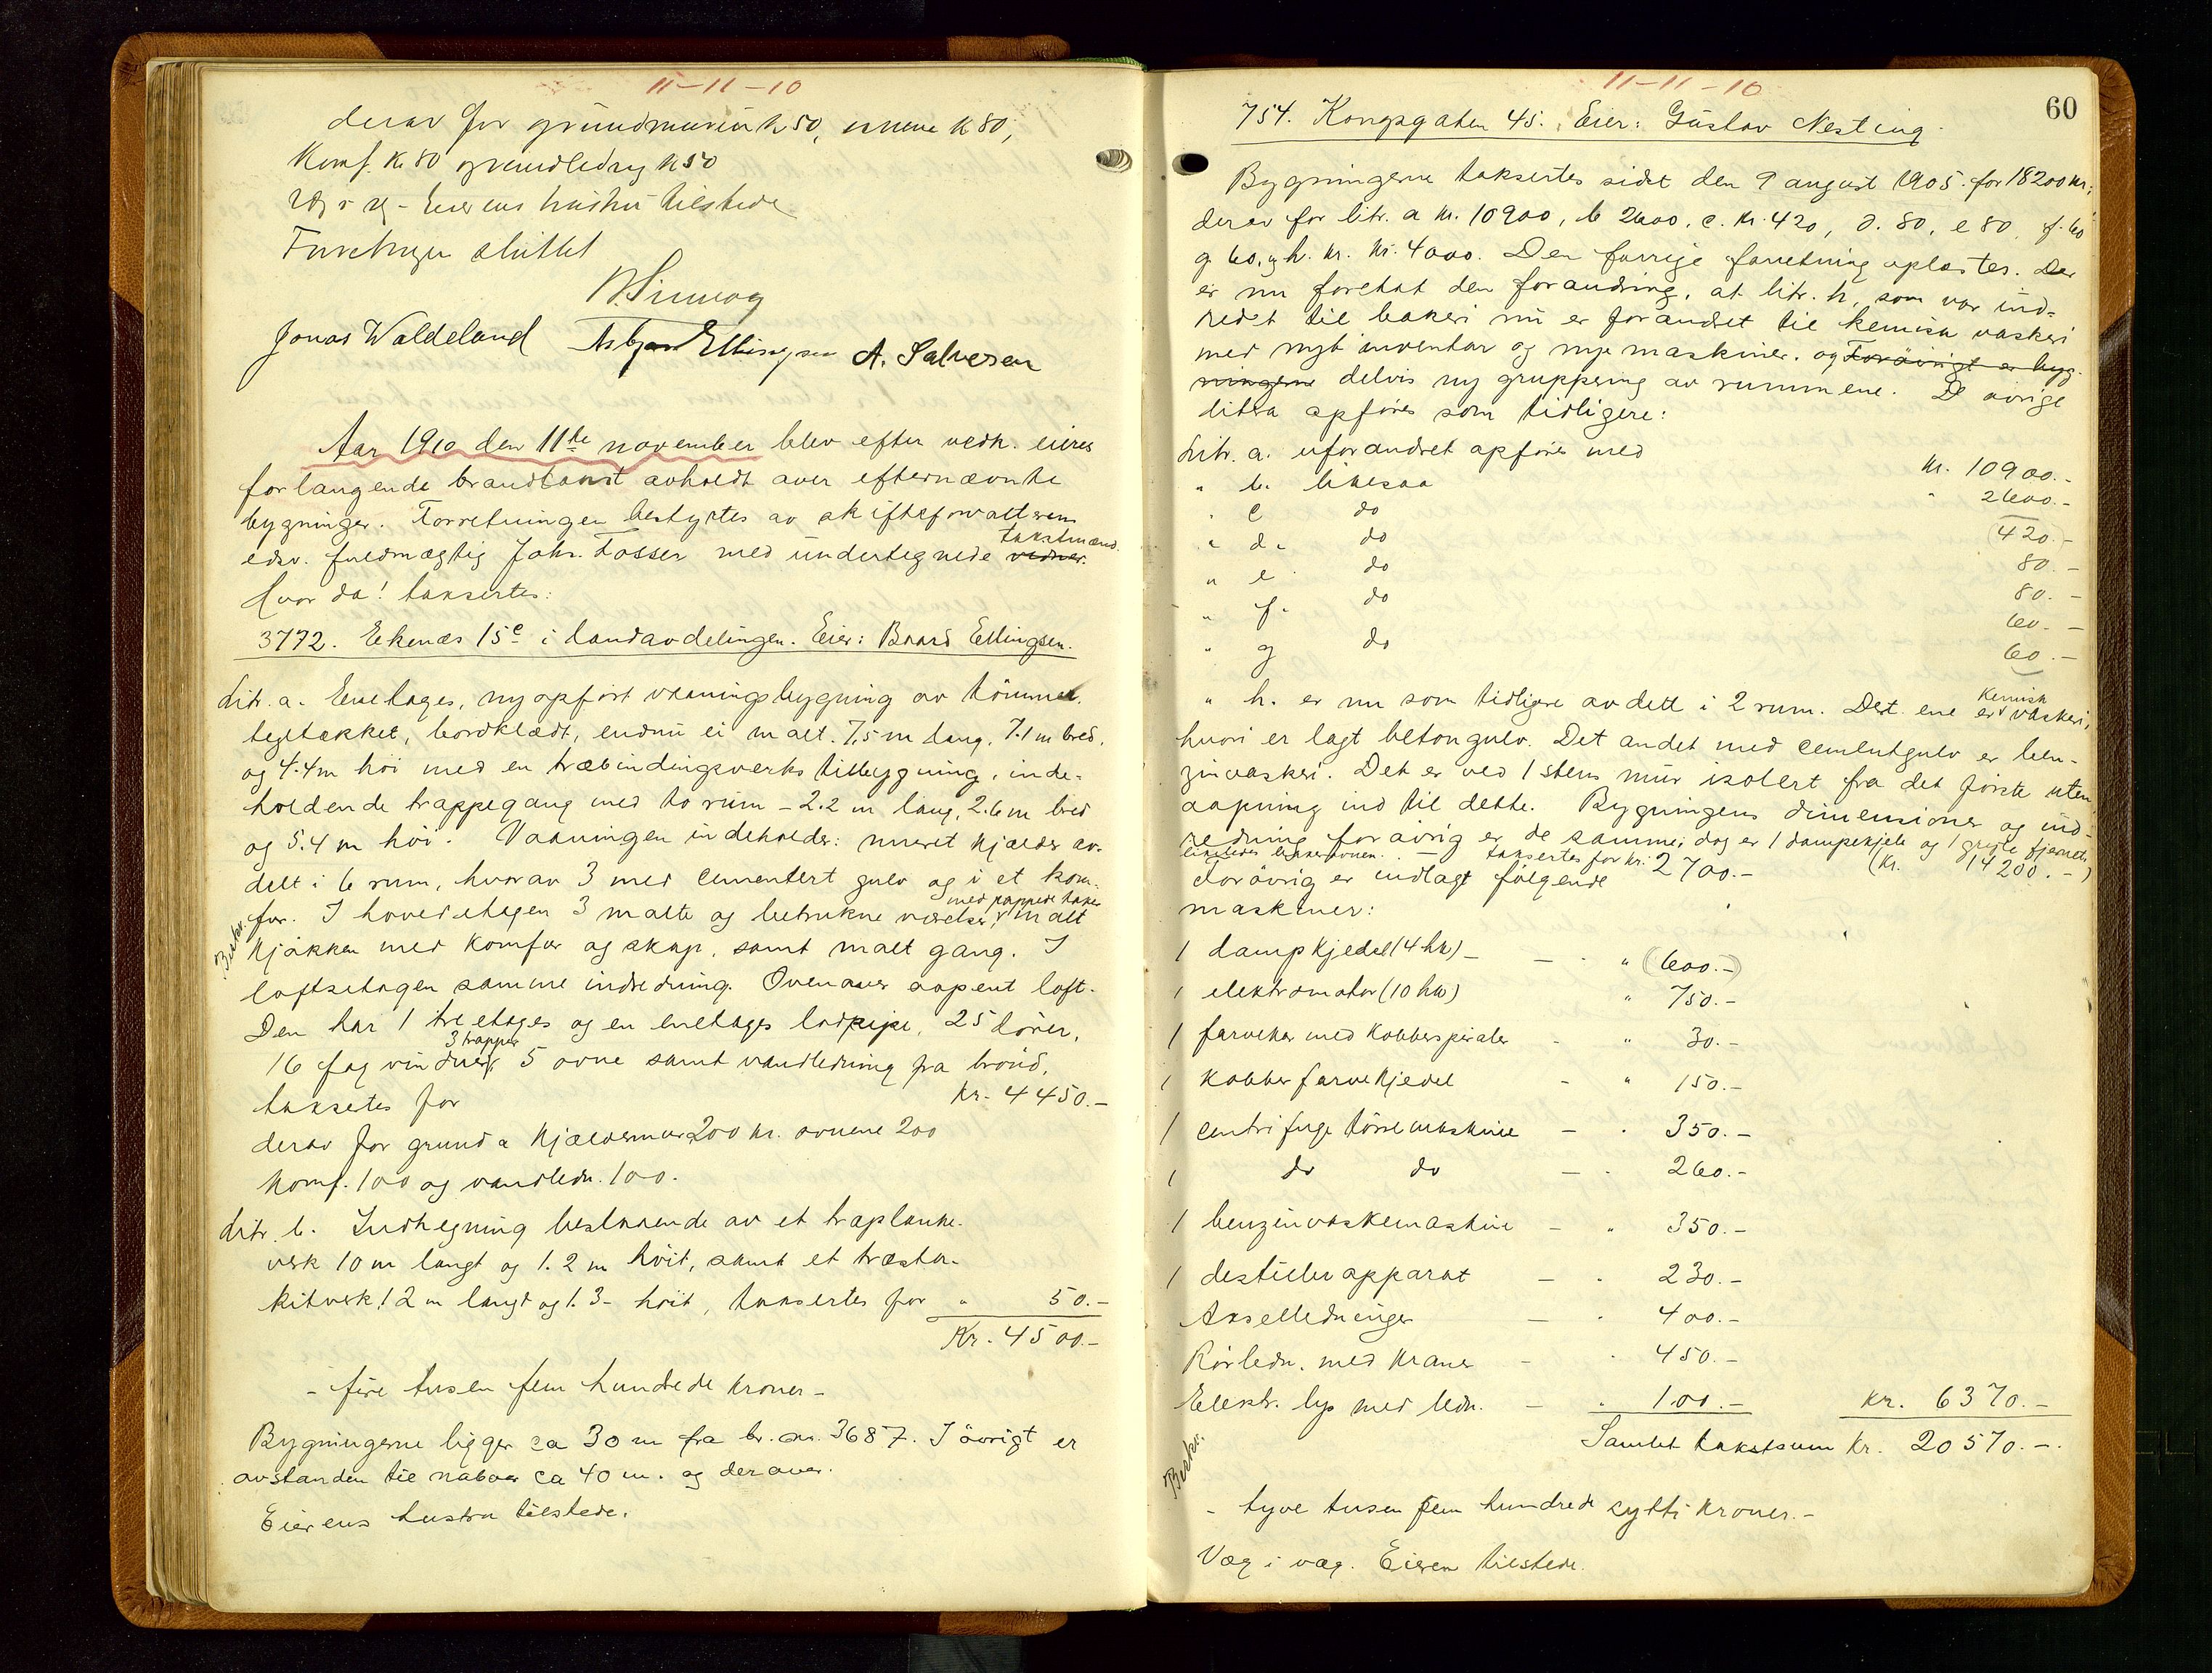 11-11-10
derav for grundmuren k 50, ovnene k 80,
Komf. k 80 og vandledng k 50
Væg i væg - Eierens hustru tilstede
Forretningen sluttet
Jonas Waldeland Asbjørn Ellingsen A. Salvesen
Aar 1910 den 11te november blev efter vedk. eieres
forlangende brandtakst avholdt over efternævnte
bygninger. Forretningen bestyrtes av skifteforvalterens
takstmænd.
edsv. fuldmægtig Johs. Tosser med undertegnede vidner.
Hvor da! taksertes:
3772. Ekenæs 15e i landavdelingen. Eier: Baard Ellingsen.
Litr. a. Enetages, nyopført vaaningsbygning av tømmer.
tegltækket, bordklædt, endnu ei malt. 7,5 m lang, 7.1 m bred,
og 4.4 m høi med en træbindingsverks tilbygning, inde-
holdende trappegang med to rum - 2.2 m lang, 2.6 m bred
og 5.4 m høi. Vaaningen indeholder: muret kjælder av-
delt i 6 rum, hvorav 3 med cementert gulv og i et kom-
med pappede taker
fur. I hovedetagen 3 malte og betrukne værelser, malt
Beskr.
kjøkken med komfur og skap, samt malt gang. I
loftsetagen samme indredning. Ovenover aapent loft.
Den har 1 tre etages og en enetages lodpipe, 25 dører,
3 trapper
16 fag vinduer, 5 ovne samt vandledning fra brønd,
taksertes for Kr. 4450.-
derav for grund a kjældermur 200 kr. ovnene 200
komf. 100 og vandledn. 100.
Litr. b. Indhegning bestaaende av et træplanke-
verk 10 m langt og 1.2 m høit, samt et træsta-
kitverk 12 m langt og 1.3 - høit, taksertes for " 50.-
Kr. 4500.-
- fire tusen fem hundrede kroner -
Bygningerne ligger ca 30 m fra br. no. 3687. I øvrigt er
avstanden til naboer ca 40 m. og derover.
Eierens hustru tilstede.
11-11-10
60
754. Kongsgaten 45. Eier: Gustav Nesting.
Bygningerne taksertes sidst den 9 august 1905 for 18200 kr;
derav for litr. a kr. 10900, b 2600, c. kr. 420, d. 80, e 80, f. 60
g. 60, og h. kr. kr. 4000. Den forrige forretning oplæstes. Der
er nu foretat den forandring, at litr. h, som var ind-
redet til bakeri nu er forandret til kemisk vaskeri
med nyt inventar og nye maskiner. og Forøvrigt er byg-
ningerne delvis ny gruppering av rummene. De øvrige
litra opføres som tidligere:
Litr. a. uforandret opføres med Kr. 10900.-
" b. likesaa " 2600.-
" c do 420.-
" d. do 80.-
" e. do 80.-
" f. do 60.-
" g do 60.-
kemisk
" h. er nu som tidligere avdelt i 2 rum. Det ene er vaskeri,
hvori er lagt betongulv. Det andet med cementgulv er ben-
zinvaskeri. Det er ved 1 stens mur isolert fra det første uten
aapning ind til dette. Bygningens dimensioner og ind-
redning forøvrig er de samme; dog er 1 dampekjele og 1 gryte fjernet,
likeledes bakerovnen. - taksertes for kr: 2700.- (Kr. 14200.-)
Forøvrig er indlagt følgende
maskiner:
1 dampkjedel (4 hk) - - " (600.-)
1 elektromotor (10 hk) " 750.-
1 farvekar med kobberspiraler - " 30.-
1 kobber farvekjedel - " 150.-
1 centrifuge tørremaskine - " 350.-
1 do do - " 260.-
1 benzinvaskemaskine - " 350.-
1 destillerapparat - " 230.-
Akselledninger - " 400.-
Rørledn. med kraner - " 450.-
Elektr. lys med ledn. - " 100.- Kr. 6370.-
Samlet takstsum Kr. 20570.-.
Beskr.
- tyve tusen fem hundrede sytti kroner.-
Væg i væg. Eieren tilstede.